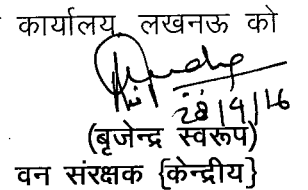 कार्यालय लखनऊ को
28/9/16
(बृजेन्द्र स्वरूप)
वन संरक्षक {केन्द्रीय}